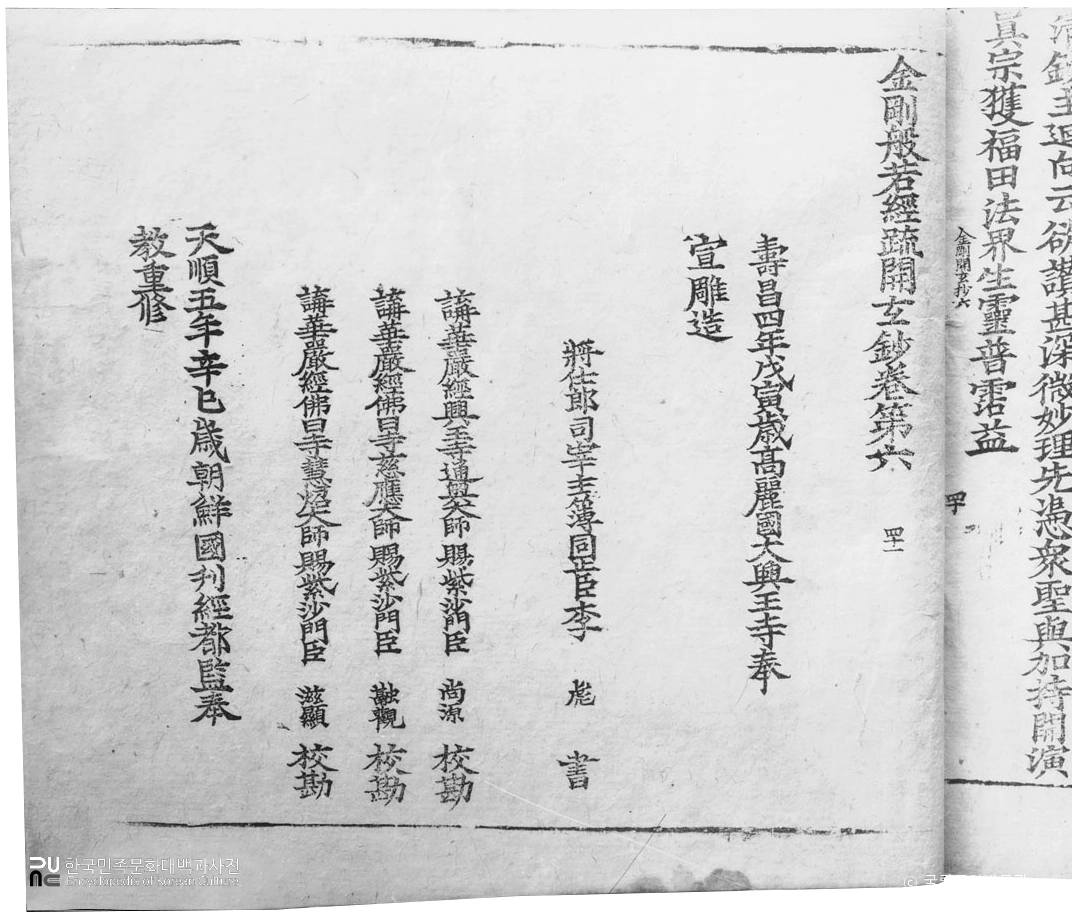 鈔主迴向云欲讚甚深微妙理先憑衆聖與加持開演
眞宗獲福田法界生靈普霑益
金剛開玄抄六
四十
金剛般若經疏開玄鈔卷第六 四十一
壽昌四年戊寅歲高麗國大興王寺奉
宣雕造
將仕郎司宰主簿同正臣李 彪 書
講華嚴經興王寺通奧大師賜紫沙門臣 尙源 校勘
講華嚴經佛日寺慈應大師賜紫沙門臣 融觀 校勘
講華嚴經佛日寺慧炤大師賜紫沙門臣 滋顯 校勘
天順五年辛巳歲朝鮮國刊經都監奉
教重修
한국민족문화대백과사전
Encyclopedia of Korean Culture